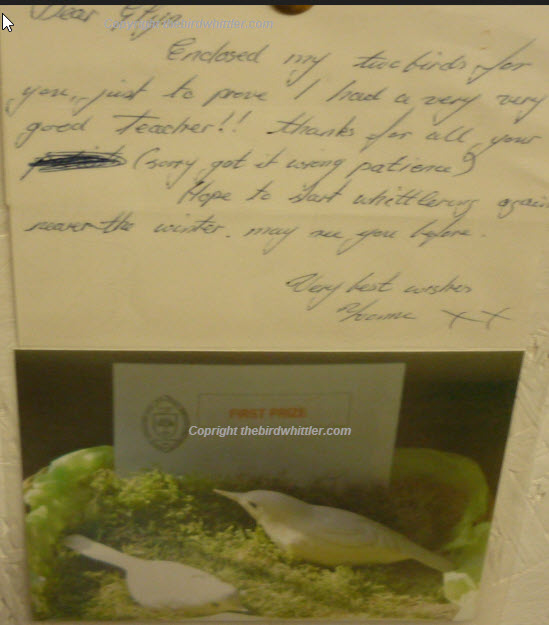 Dear
Copyright thebirdwhittler.com
Enclosed my two birds for
you, just to prove I had a very very
good Teacher!! thanks for all your
(sorry got it wrong patience)
Hope to start whittlering again
nearer the winter. may see you before.
Very best wishes
XX
FIRST PRIZE
Copyright thebirdwhittler.com